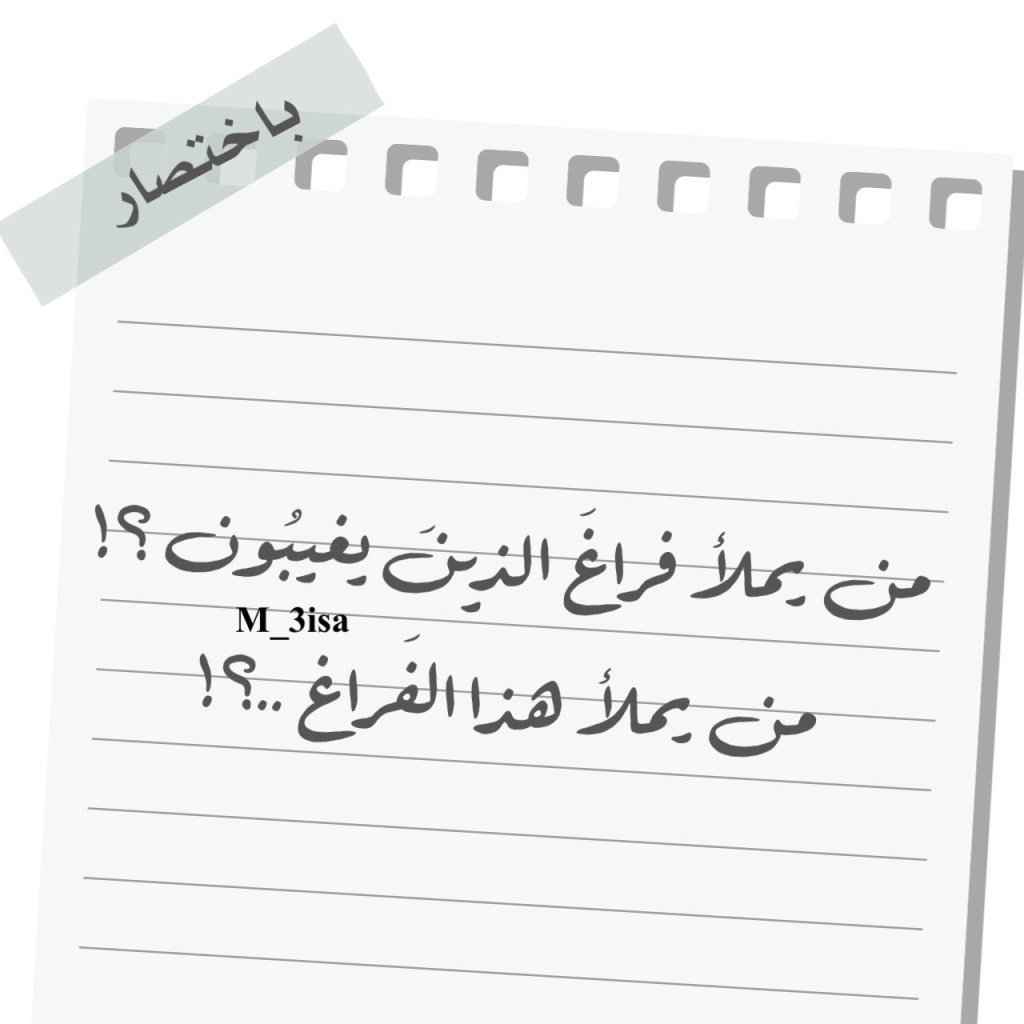 باختصار
من يملأ فراغَ الذينَ يغيبُون ؟!
M_3isa
من يملأ هذا الفَراغ ..؟!